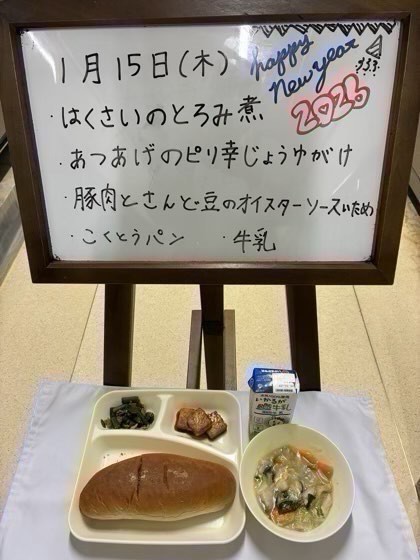 1月15日(木)
happy
new year
2026
・はくさいのとろみ煮
・あつあげのピリ辛じょうゆがけ
・豚肉とさんど豆のオイスターソースいため
・こくとうパン ・牛乳
いかるが
牛乳